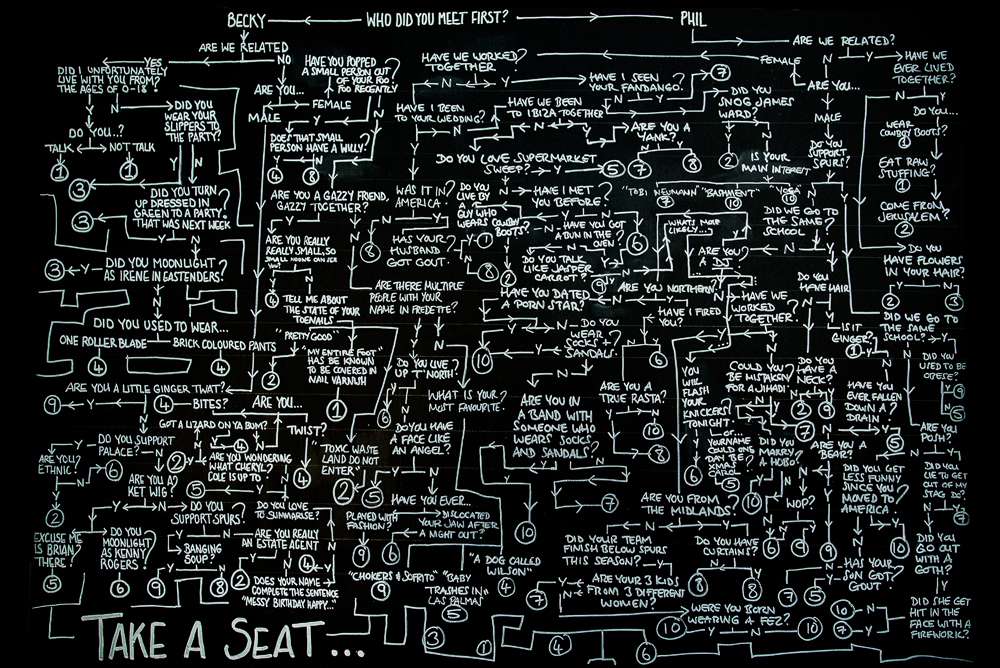 BECKY
WHO DID YOU MEET FIRST?
PHIL
ARE WE RELATED
YES
NO
DID I UNFORTUNATELY
LIVE WITH YOU FROM?
THE AGES OF 0-18?
Y
N
DO YOU..?
TALK
NOT TALK
1
1
3
DID YOU
WEAR YOUR
SLIPPERS TO
THE PARTY?
Y
N
3
DID YOU TURN
UP DRESSED IN
GREEN TO A PARTY?
THAT WAS NEXT WEEK
Y
N
3
Y
DID YOU MOONLIGHT
AS IRENE IN EASTENDERS?
N
DID YOU USED TO WEAR...
ONE ROLLER BLADE
BRICK COLOURED PANTS
4
4
ARE YOU...
FEMALE
MALE
HAVE YOU POPPED
A SMALL PERSON OUT
OF YOUR FOO
FOO RECENTLY
Y
N
DOES THAT SMALL
PERSON HAVE A WILLY?
Y
N
4
8
ARE YOU A GAZZY FRIEND,
GAZZY TOGETHER?
Y
N
ARE YOU REALLY
REALLY SMALL, SO
4
TELL ME ABOUT
THE STATE OF YOUR
TOENAILS
"PRETTY GOOD"
2
"MY ENTIRE FOOT"
HAS BE KNOWN
TO BE COVERED IN
NAIL VARNISH
1
"TOXIC WASTE
LAND DO NOT
ENTER"
2
5
ARE YOU A LITTLE GINGER TWAT?
9
Y
N
DO YOU SUPPORT
PALACE?
Y
N
ARE YOU?
ETHNIC?
Y
N
2
6
ARE YOU A?
KET WIG?
Y
N
EXCUSE ME
IS BRIAN?
THERE!
5
DO YOU
MOONLIGHT
AS KENNY
ROGERS!
6
9
4
BITES?
ARE YOU...
TWIST?
GOT A LIZARD ON YA BUM?
2
ARE YOU WONDERING
WHAT CHERYL?
COLE IS UP TO?
5
4
DO YOU
SUPPORT SPURS?
BANGING
SOUP?
8
DO YOU LOVE
TO SUMMARISE?
ARE YOU REALLY
AN ESTATE AGENT
2
4
DOES YOUR NAME
COMPLETE THE SENTENCE
"MESSY BIRTHDAY HAPPY..."
HAVE WE WORKED?
TOGETHER...
N
Y
HAVE I SEEN
YOUR FANDANGO?
7
HAVE I BEEN
TO YOUR WEDDING?
HAVE WE BEEN
TO IBIZA TOGETHER
DO YOU LOVE SUPERMARKET
SWEEP?
5
ARE YOU A
YANK?
7
8
DID YOU
SNOG JAMES
WARD?
2
IS YOUR
MAIN INTEREST
"TOBI NEUMANN"
7
"BASHMENT"
10
"YOGA"
10
WAS IT IN?
AMERICA
6
HAS YOUR
HUSBAND
GOT GOUT
DO YOU
LIVE BY
GUY WHO
WEARS COWBOY
BOOTS?
1
8
HAVE I MET
YOU BEFORE?
HAVE YOU GOT
A BUN IN THE
OVEN
6
DO YOU TALK
LIKE JASPER
CARROT?
9
2
ARE YOU NORTHERN?
WHATS MORE
LIKELY...
ARE YOU?
A DJ
ARE THERE MULTIPLE
PEOPLE WITH YOUR
NAME IN FREDETTE?
DO YOU LIVE
UP 'T' NORTH?
WHAT IS YOUR
MOST FAVOURITE.
DO YOU HAVE
A FACE LIKE
AN ANGEL?
HAVE YOU EVER...
PLAYED WITH
FASHION?
9
6
DISLOCATED
YOUR JAW AFTER
A NIGHT OUT?
"CHOKERS & SOFRITO"
9
"BABY
TRASHES IN"
LAS PALMAS
5
"A DOG CALLED
WILSON"
4
HAVE YOU DATED
A PORN STAR?
10
DO YOU
WEAR
SOCKS +
SANDALS.
ARE YOU IN
A BAND WITH
SOMEONE WHO
WEARS SOCKS
AND SANDALS?
7
HAVE I FIRED
YOU?
6
ARE YOU A
TRUE RASTA?
10
8
HAVE WE
WORKED
TOGETHER..
YOU
WILL
FLASH
YOUR
KNICKERS?
TONIGHT
6
OF...
YOUR NAME
COULD ONE
DAY BE?
XMAS
CAROL
5
COULD YOU
BE MISTAKEN
FOR A JIHADI
DO YOU
HAVE A
NECK?
2
9
7
DID YOU
MARRY
A HOBO?
10
WOP?
6
9
9
ARE YOU A
BEAR?
DID YOU GET
LESS FUNNY
SINCE YOU
MOVED TO
AMERICA
8
ARE YOU FROM
THE MIDLANDS?
DID YOUR TEAM
FINISH BELOW SPURS
THIS SEASON?
7
ARE YOUR 3 KIDS
FROM 3 DIFFERENT
WOMEN?
DO YOU HAVE
CURTAINS?
8
8
WERE YOU BORN
WEARING A FEZ?
10
10
HAS YOUR
SON GOT?
GOUT
7
5
ARE WE RELATED?
N
Y
FEMALE
ARE YOU...
MALE
DO YOU
SUPPORT
SPURS?
DID WE GO TO
THE SAME
SCHOOL
DO YOU
HAVE HAIR
IS IT
GINGER?
1
HAVE YOU
EVER FALLEN
DOWN A
DRAIN
5
HAVE WE
EVER LIVED
TOGETHER?
DO YOU...
WEAR
COWBOY BOOTS?
1
EAT RAW
STUFFING?
1
COME FROM
JERUSALEM?
2
DO YOU
HAVE FLOWERS
IN YOUR HAIR?
2
3
DID WE GO TO
THE SAME
SCHOOL?
DID YOU
USED TO BE
OBESE?
9
5
ARE YOU
POSH?
DID YOU
LIE TO GET
OUT OF MY
STAG DO?
7
DID YOU
GO OUT
WITH A
GOTH?
DID SHE GET
HIT IN THE
FACE WITH A
FIREWORK?
10
7
TAKE A SEAT...
3
1
4
6